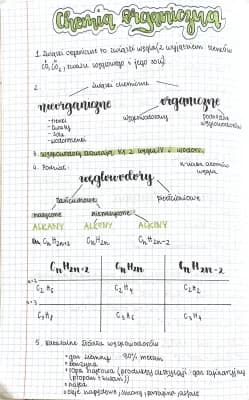 Chemia organiczna
1. Związki organiczne to związki węgla (z wyjątkiem tlenków
CO, CO₂, kwasu węglowego i jego soli)
2. związki chemiczne
nieorganiczne organiczne
- tlenki
- kwasy
- sole
- wodorotlenki
węglowodory
pochodne
węglowodorów
3. węglowodory składają się z węgla (C) i wodoru
4. Podział:
n-liczba atomów
węgla
węglowodory
łańcuchowe pierścieniowe
nasycone nienasycone
ALKANY ALKENY ALKINY
CnH2n+2 CnH2n CnH2n-2
CnH2n+2 CnH2n CnH2n-2
n=2 C₂H₆ C₂H₄ C₂H₂
n=3 C₃H₈ C₃H₆ C₃H₄
5. Naturalne źródła węglowodorów
• gaz ziemny 90% metan
• benzyna
• ropa naftowa (produkty destylacji - gaz rafineryjny
(propan + butan))
• nafta
• oleje napędowe, smary,